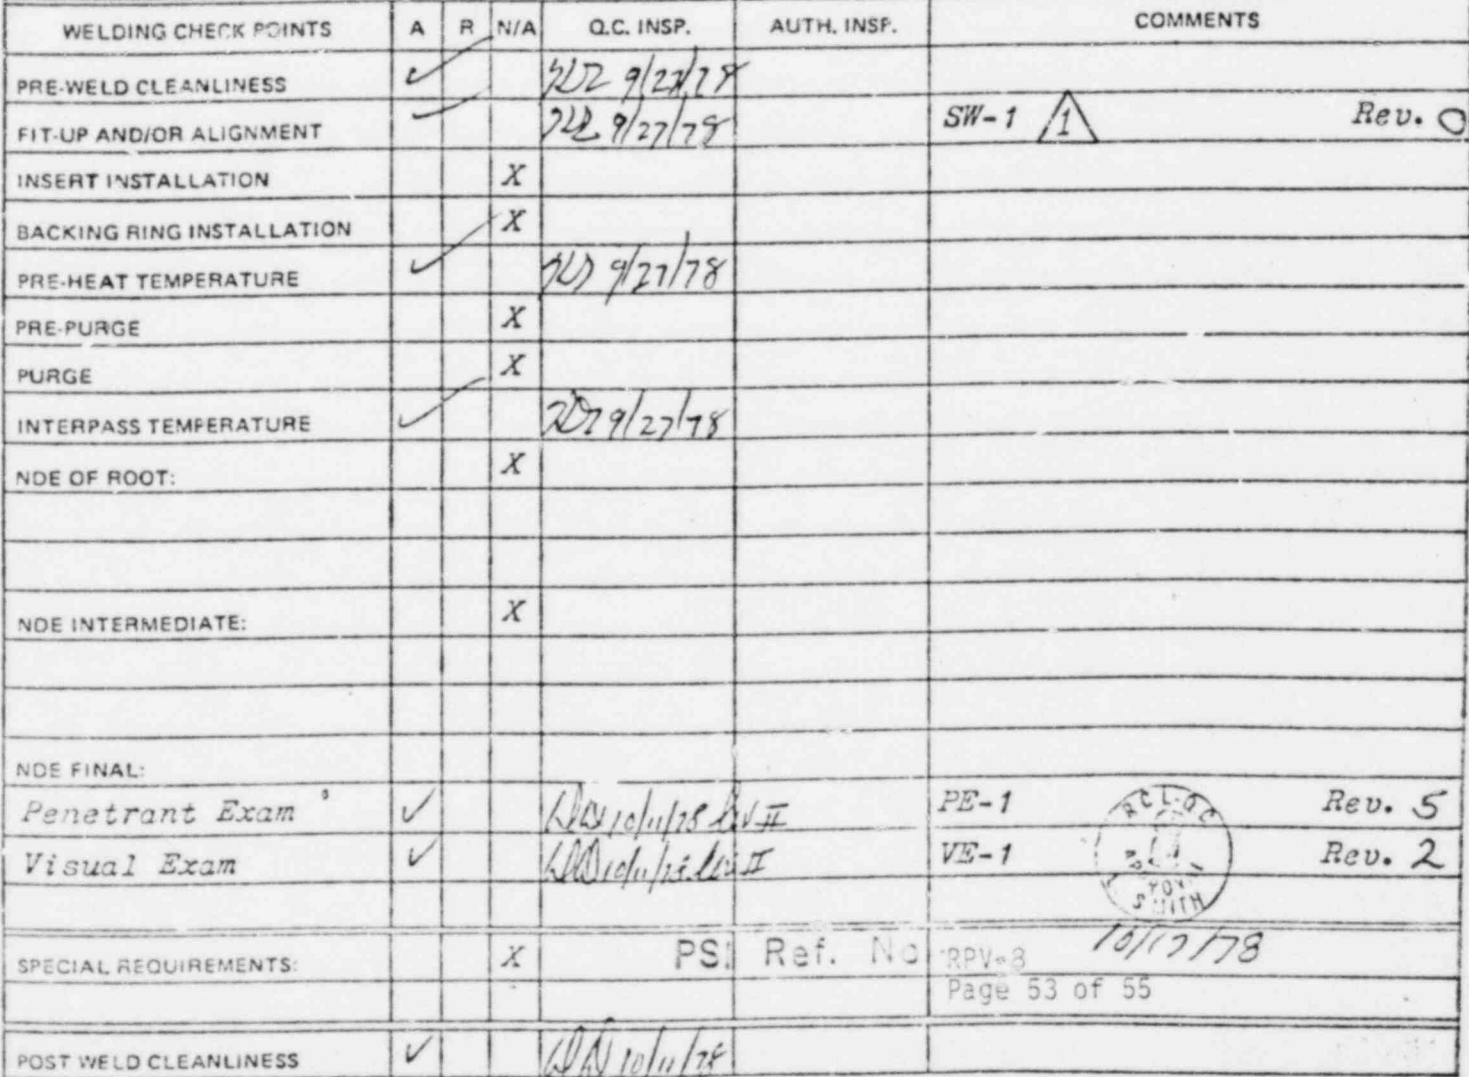 WELDING CHECK POINTS A R N/A Q.C. INSP. AUTH. INSP. COMMENTS
PRE-WELD CLEANLINESS ✓ 9/27/78
FIT-UP AND/OR ALIGNMENT ✓ 9/27/78 SW-1 1 Rev. 0
INSERT INSTALLATION X
BACKING RING INSTALLATION X
PRE-HEAT TEMPERATURE ✓ 9/27/78
PRE-PURGE X
PURGE X
INTERPASS TEMPERATURE ✓ 9/27/78
NDE OF ROOT: X
NDE INTERMEDIATE: X
NDE FINAL:
Penetrant Exam ✓ 10/11/78 II PE-1 Rev. 5
Visual Exam ✓ 10/11/78 II VE-1 Rev. 2
RCL-QC
SMITH
10/17/78
SPECIAL REQUIREMENTS: X PSI Ref. No RPV-8
Page 53 of 55
POST WELD CLEANLINESS ✓ 10/11/78